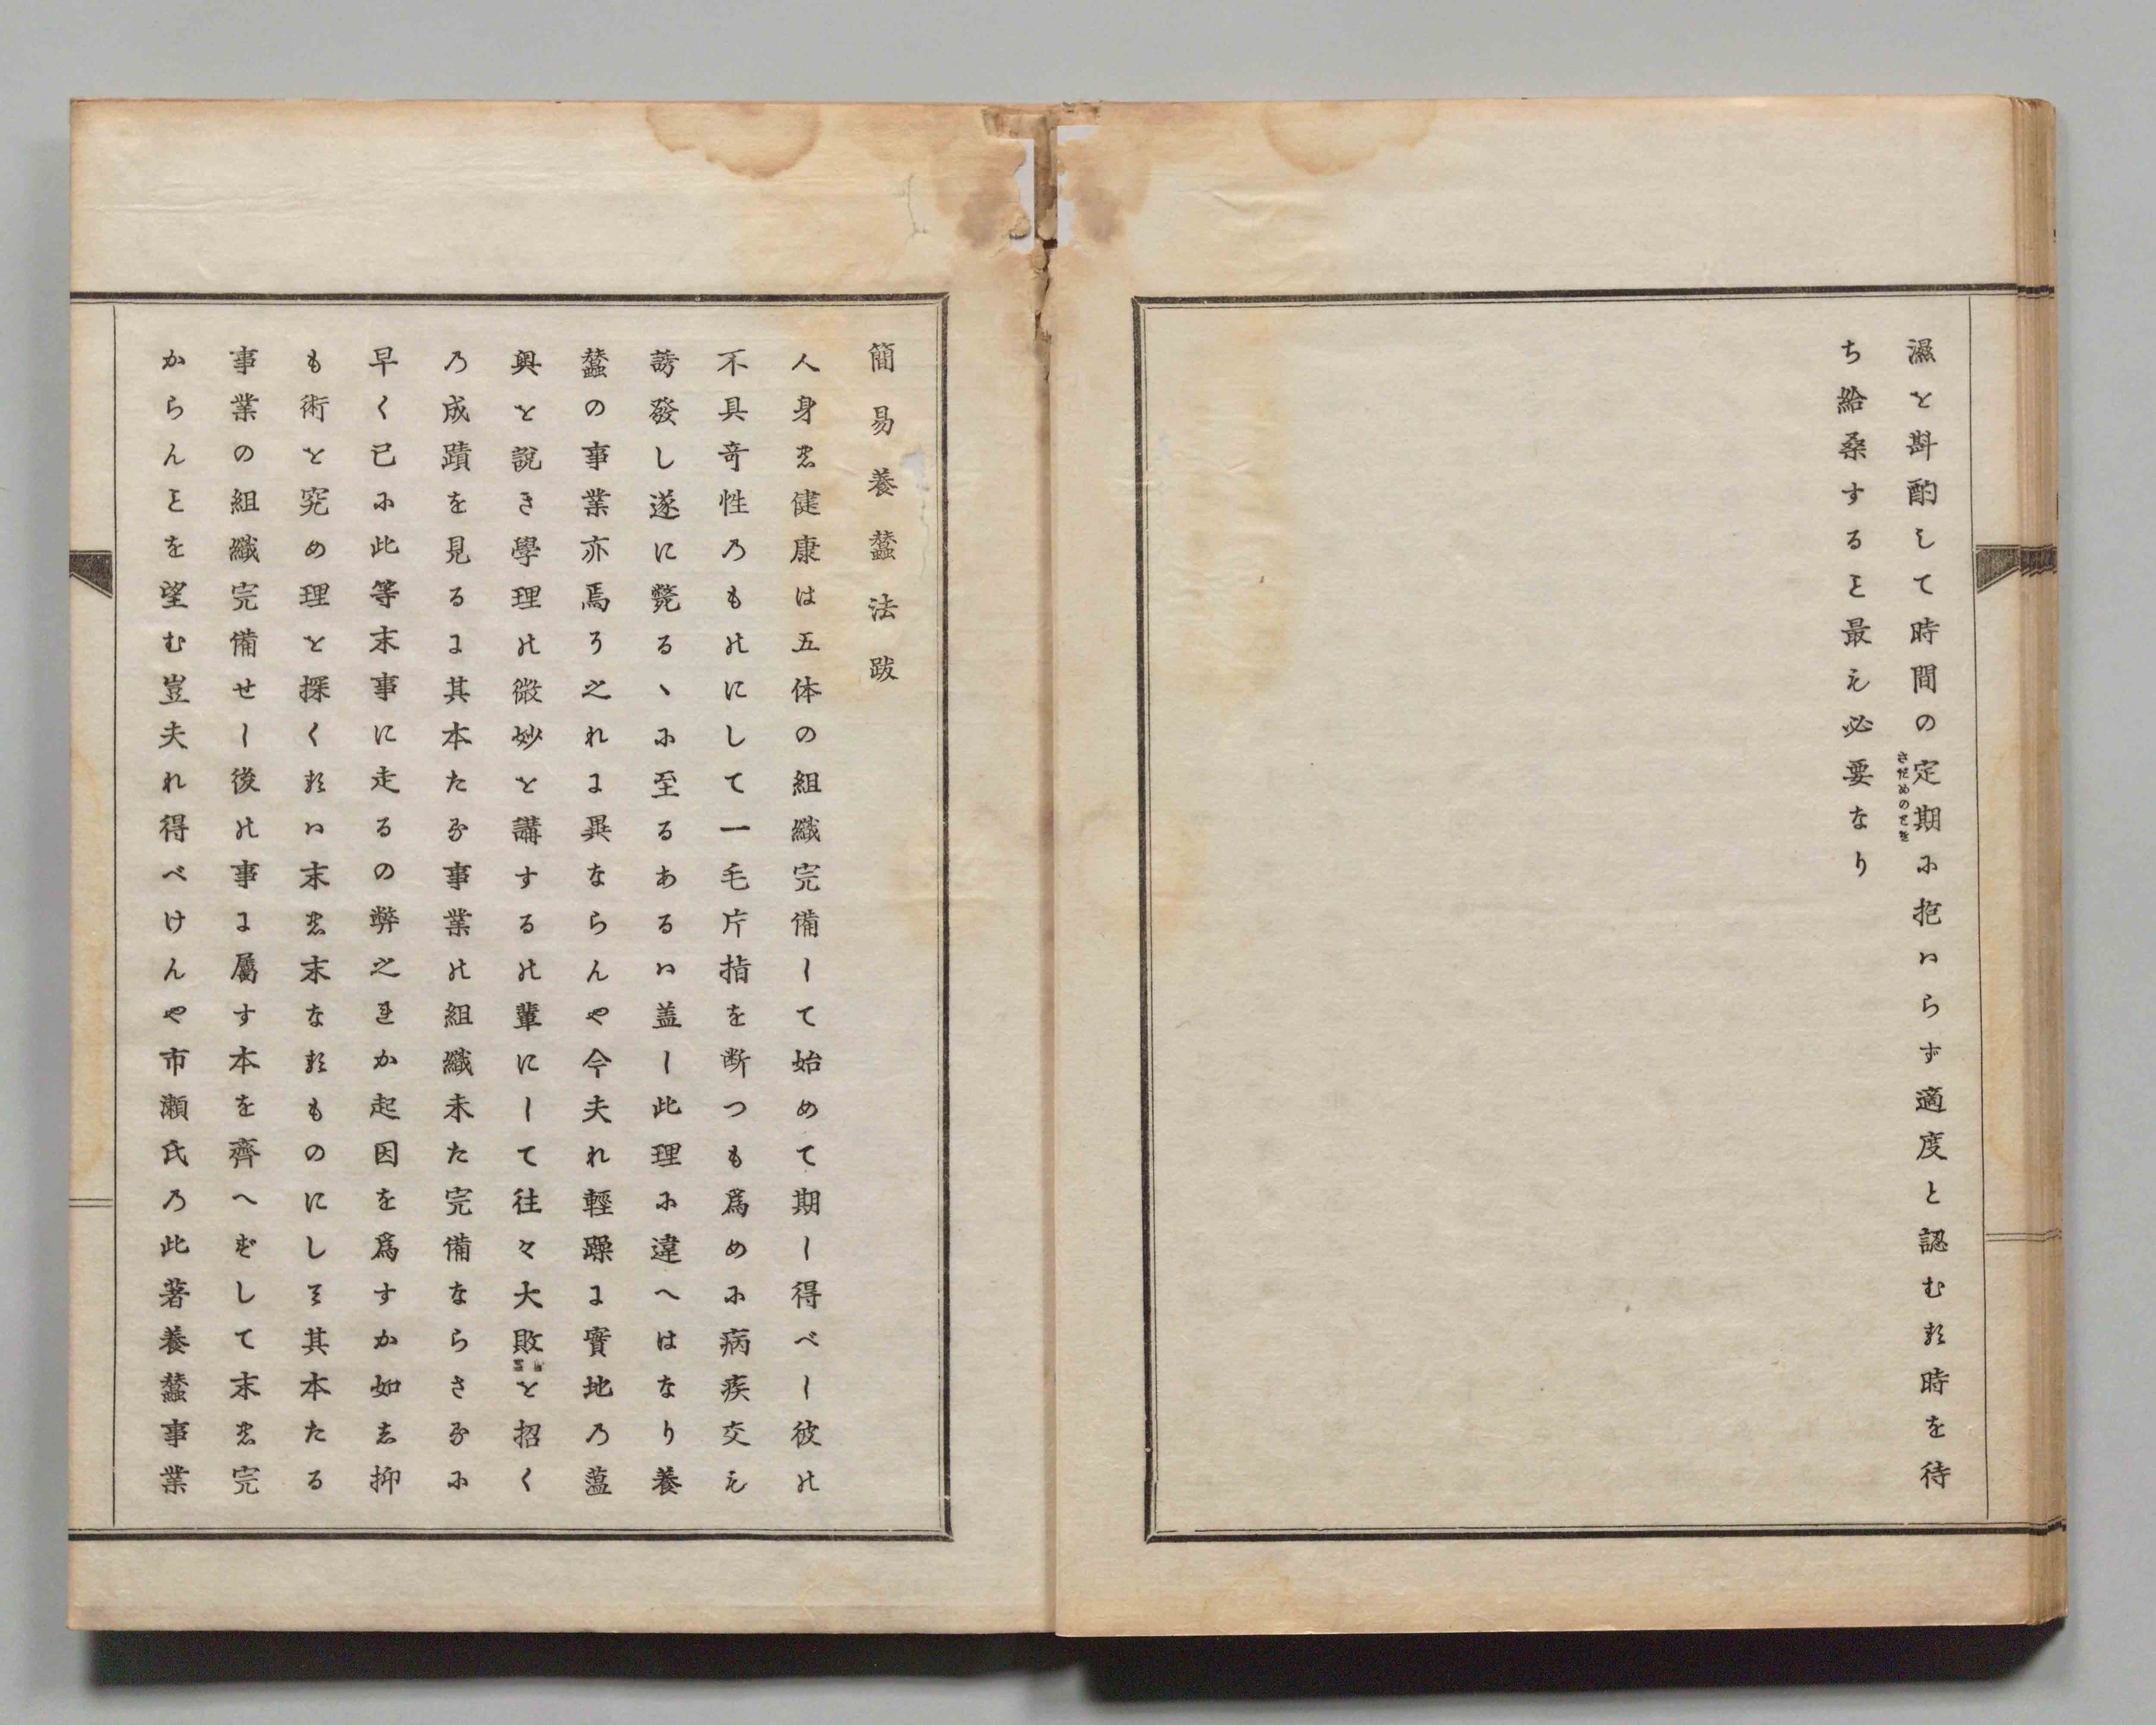 濕を斟酌して時間の定期に抱はらず適度と認むる時を待
さだめのとき
ち給桑すること最も必要なり
簡易養蠶法跋
人身の健康は五体の組織完備して始めて期し得べし彼の
不具奇性のものにして一毛片指を断つも爲めに病疾交も
誘發し遂に斃るヽに至るあるは盖し此理に違へはなり養
蠶の事業亦焉そ之れに異ならんや今夫れ輕躁に實地の蘊
奥を説き學理の微妙を講するの輩にして往々大敗を招く
の成蹟を見るに其本たる事業の組織未た完備ならさるに
早く已に此等末事に走るの弊之れか起因を爲すか如し抑
も術を究め理を探くるは末の末なるものにして其本たる
事業の組織完備せし後の事に屬す本を齊へずして末の完
からんことを望む豈夫れ得べけんや市瀬氏の此著養蠶事業